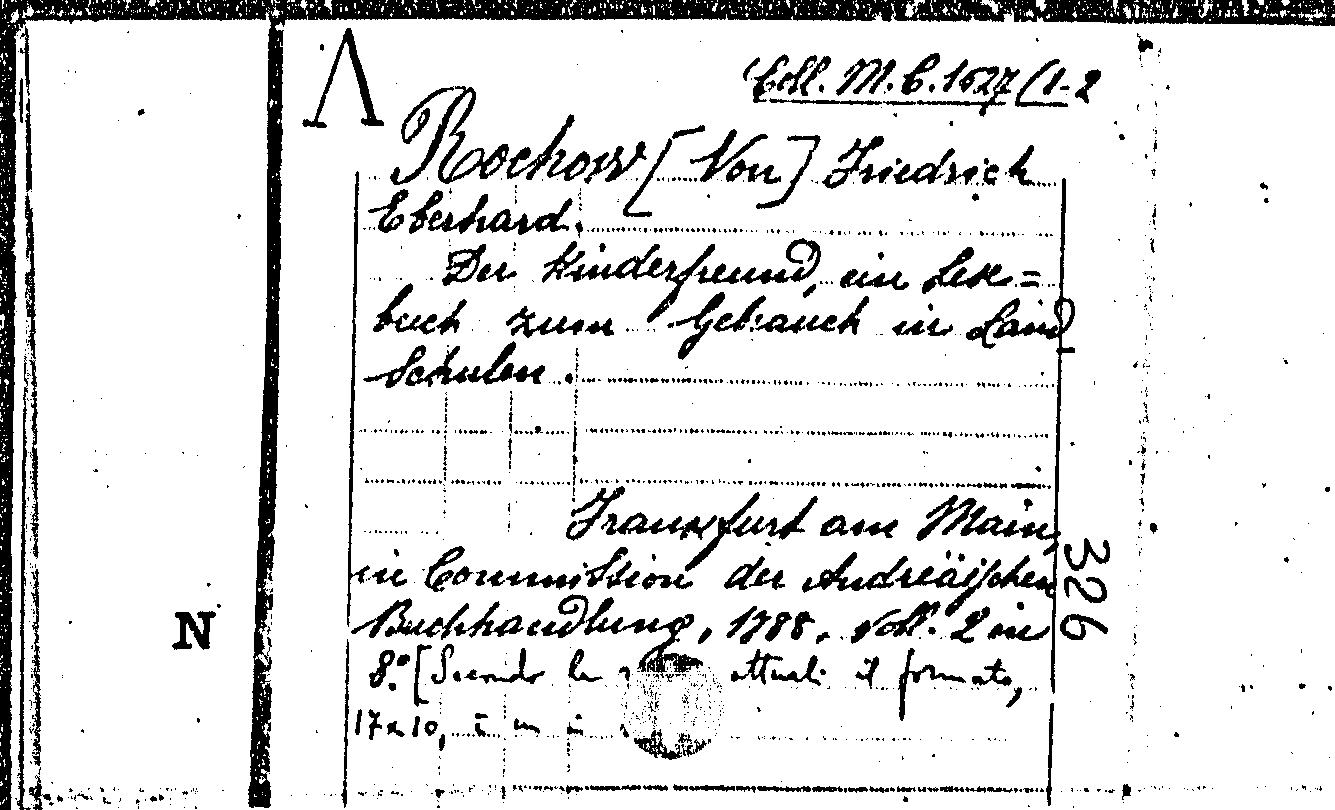 Λ
Coll. M.C. 1627/(1-2
Rochow [Von] Friedrich
Eberhard.
Der Kinderfreund, ein Lese=
buch zum Gebrauch in Land
Schulen.
Frankfurt am Main,
in Commission der Andreäischen
Buchhandlung, 1788. Voll. 2 in
8.° [Secondo le attuali il formato,
17x10, è un in
326
N